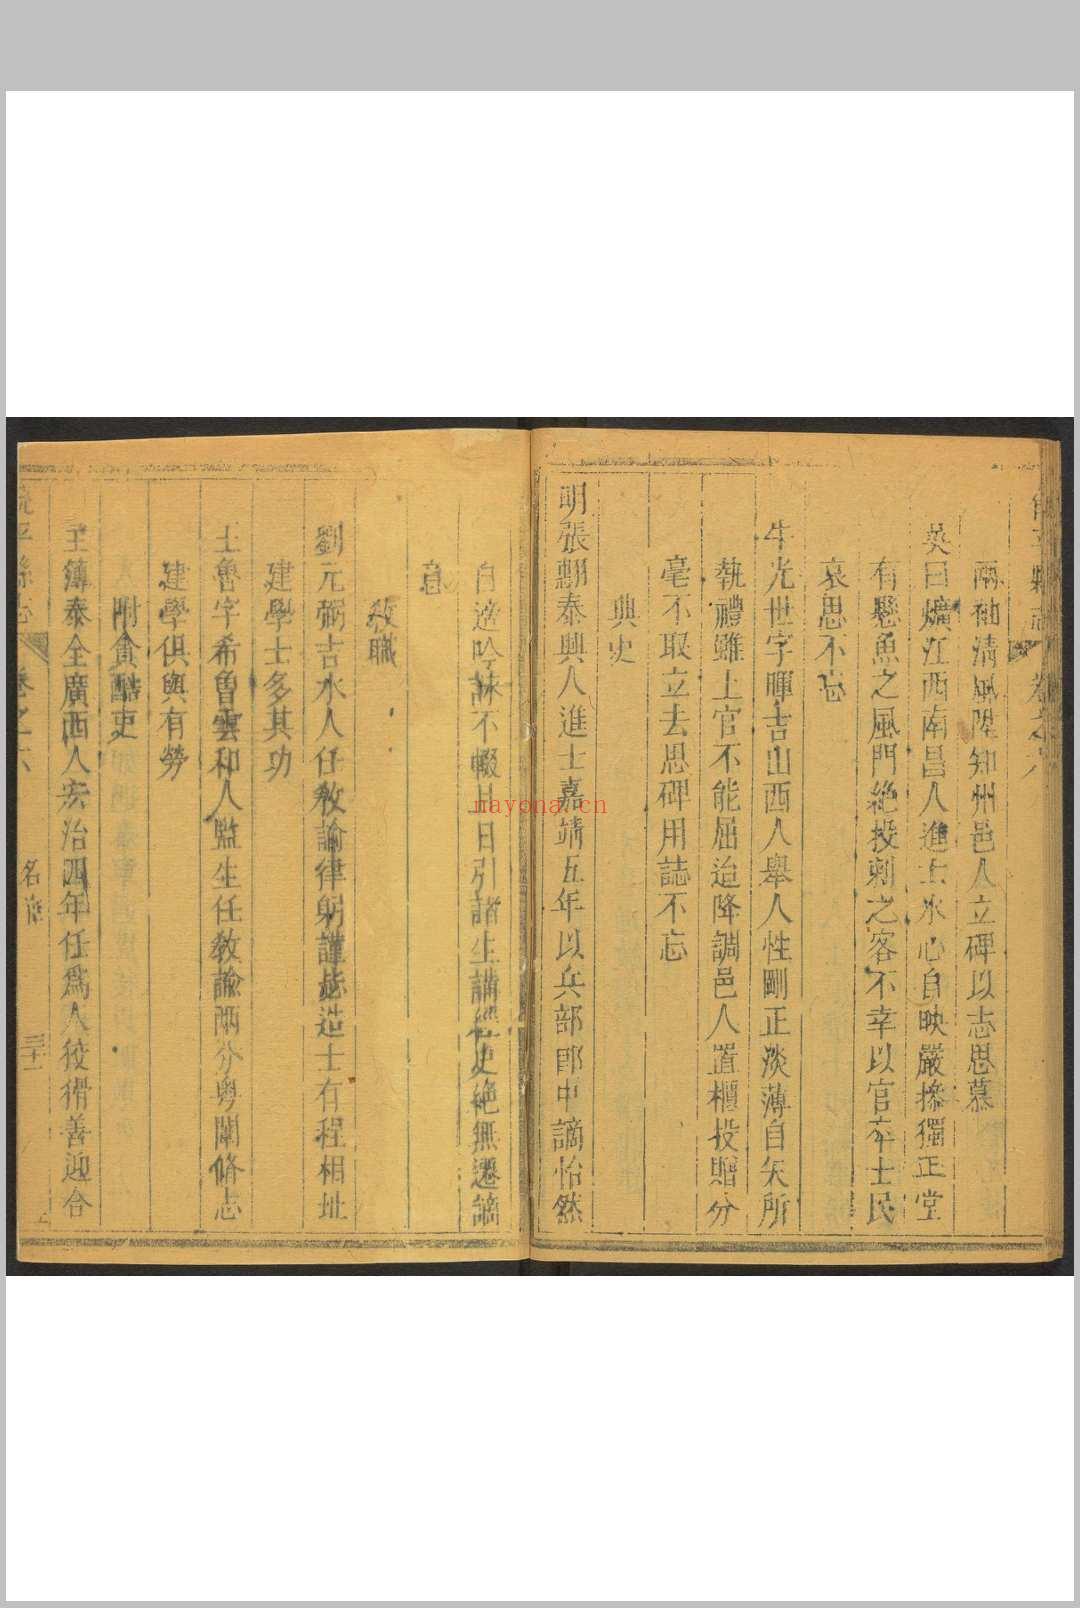 兩袖清風陞知州邑人立碑以志思慕
吳曰爌江西南昌人進士水心自映嚴操獨正堂
有懸魚之風門絶投刺之客不幸以官卒士民
哀思不忘
牛光世字暉吉山西人舉人性剛正淡薄自矢所
執禮雖上官不能屈迨降調邑人置櫃投贈分
毫不取立去思碑用誌不忘
典史
明張翾泰興人進士嘉靖五年以兵部郎中謫怡然
自適吟詠不輟且日引諸生講經史絶無遷謫
意
敎職
劉元弼吉水人任敎諭律躬謹恁造士有程相址
建學士多其功
王魯字希魯雲和人監生任敎諭兩分粤闈脩志
建學俱與有勞
附貪酷吏
王簿泰全廣西人宏治四年任爲人狡猾善迎合
卷之六
nayona.cn